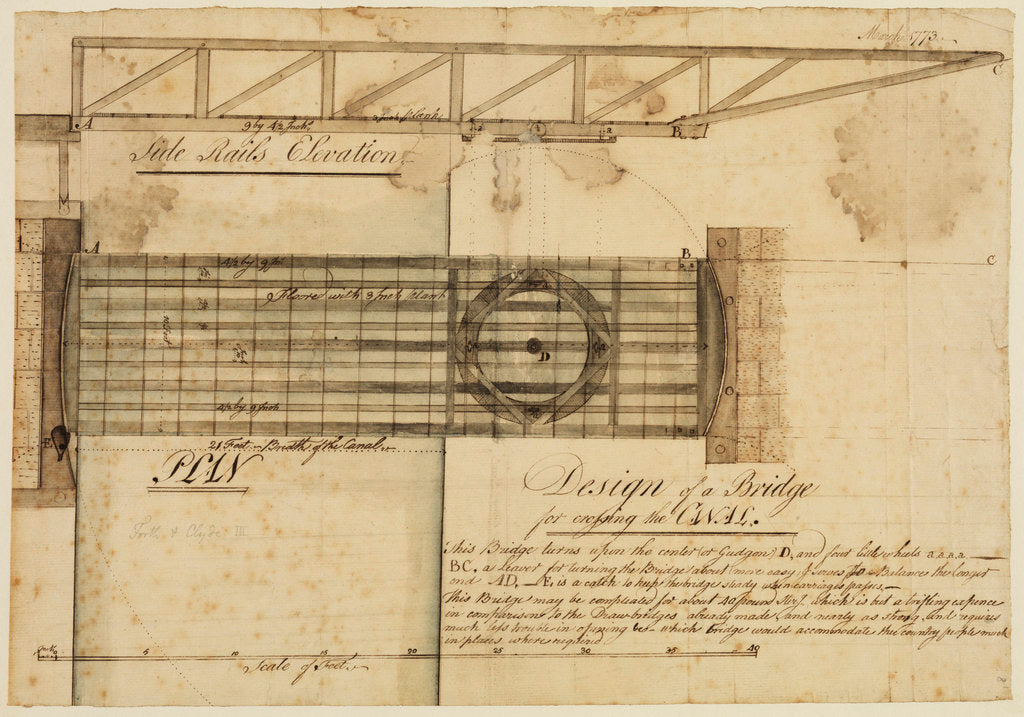 March 1773.
C
A
9 by 4½ Inch
3 Inch Plank
a
a
a
B
Side Rails Elevation
A
B
C
4½ by 9 In
Floored with 3 Inch Plank
D
4½ by 9 Inch
E
21 Feet Breath of the Canal
PLAN
Forth & Clyde III
Design of a Bridge
for crossing the CANAL.
This Bridge turns upon the center (or Gudgon) D, and four little wheels a.a.a.a
BC, a Leaver for turning the Bridge about more easy & serves to Balance the longer
end AD, Æ is a catch to keep the bridge steady when carriages passes,
This Bridge may be compleated for about 40 pound which is but a trifling expence
in comparison to the Drawbridges already made, and nearly as strong, and requires
much less trouble in opening &c which bridge would accommodate the country people much
in places where required.
5 10 15 20 25 30 35 40
Scale of Feet